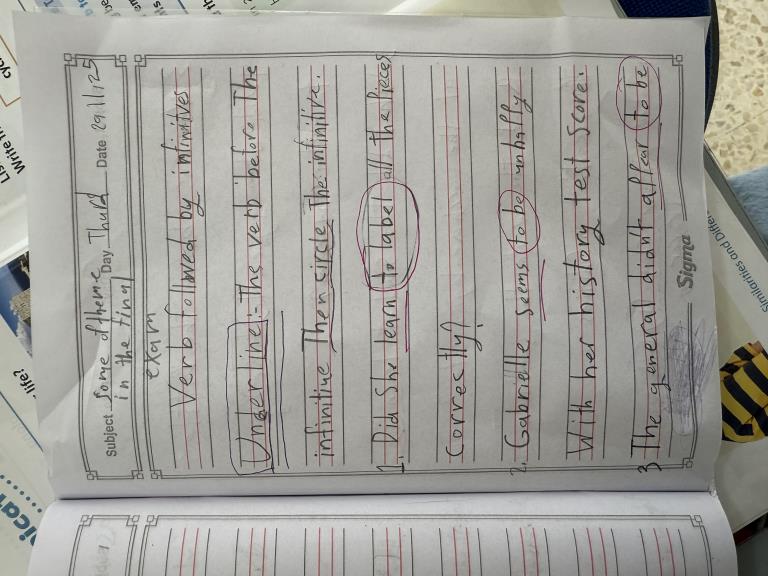 Subject Some of theme Day Thurd Date 29.11.25
in the final
exam
Verb followed by infinitives
Underline:- The verb before The
infinitive Then circle The infinitive.
1. Did She learn to label all the Pieces
correctly?
2. Gabrielle seems to be unhally
With her history test score.
3 The general didn't allear to be
Sigma
Similarities and Differ
life?
Write th